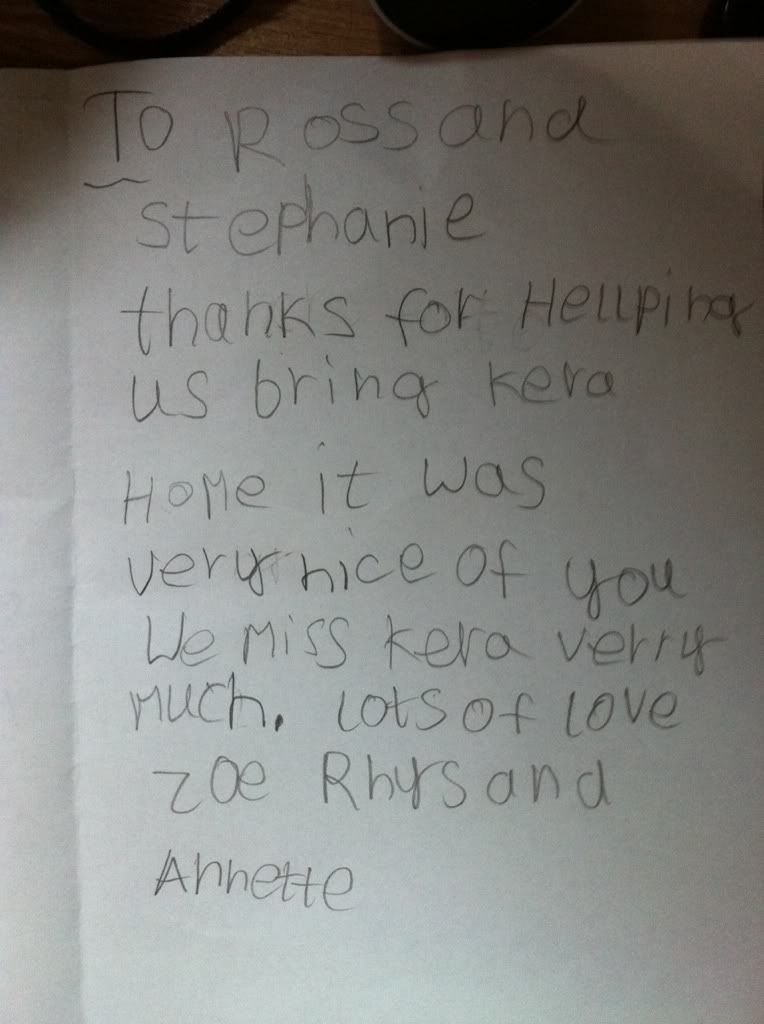 To Ross and
Stephanie
thanks for Hellping
us bring kera
Home it was
very nice of you
We miss kera verry
much. Lots of love
zoe Rhys and
Annette